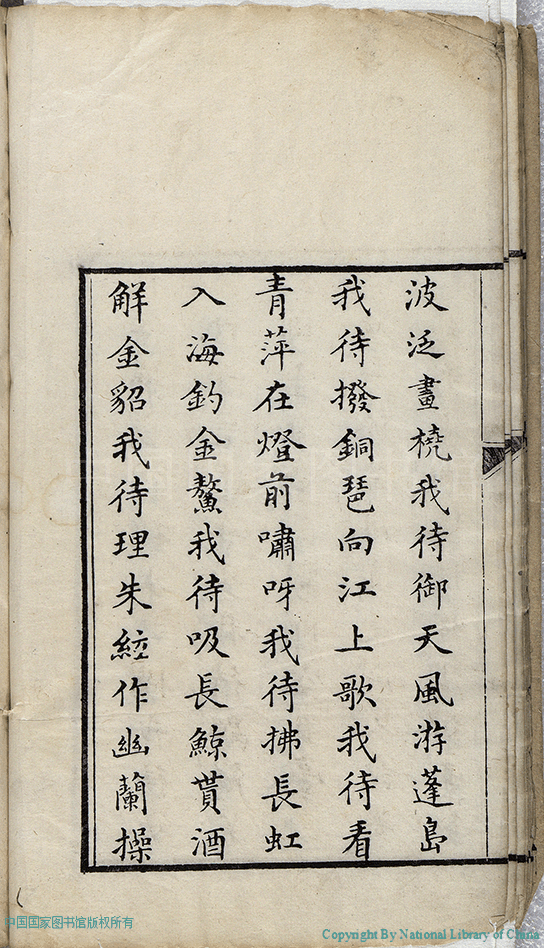 波泛畫橈我待御天風游蓬島
我待撥銅琶向江上歌我待看
青萍在燈前嘯呀我待拂長虹
入海釣金鰲我待吸長鯨貰酒
解金貂我待理朱絃作幽蘭操
中国国家图书馆版权所有
Copyright By National Library of China